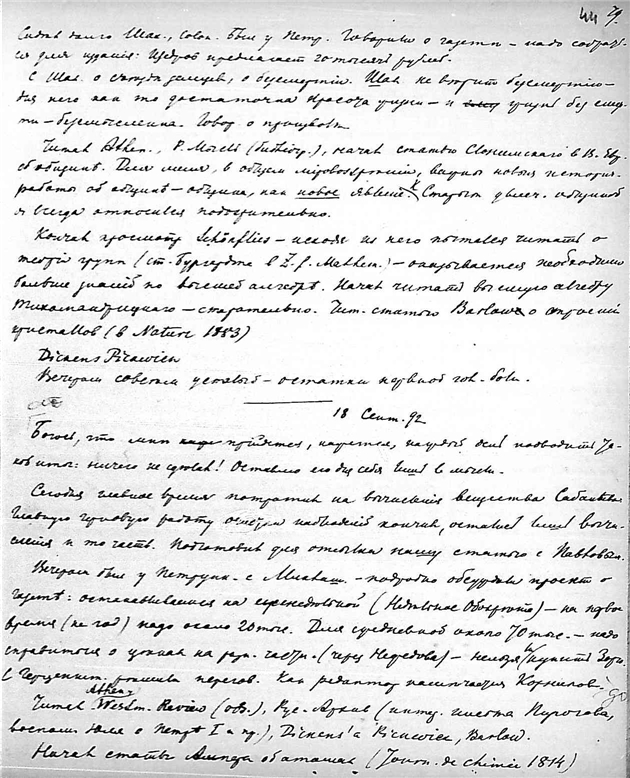 44
Сидел долго Шах., Солов. Был у Петр. Говорили о газете – надо собрать-
ся для издания: Шубров предлагает 20 тысяч рублей.
С Шах. о съезде земцев, о бессмертии. Шах. не верит бессмертию –
для него как то достаточна красота жизни – и жизнь без смер-
ти – бессмысленна. Говор. о
Читал Athen., P. Morell, начал статью Слонимского в В. Евр.
об общине. Для меня, в общем мировоззрении, важны новые историч.
работы об общине – община, как новое явление. К Старым увлеч. общиной
я всегда относился подозрительно.
Кончил просмотр Schönflies – исходя из него пытался читать о
теории групп (ст. Бургардта в Z. f. Mathem.) – оказывается необходимо
больше знаний по высшей алгебре. Начал читать высшую алгебру
Тихомандрицкого – старательно. Чит. статью Barlow о строении
кристаллов (в Nature 1883)
Dickens Pickwick
Вечером совсем усталый – остатки нервной гол. боли.
18 Сент. 92
Боюсь, что мне придется, кажется, каждый день подводить
итог: ничего не сделал! Оставляю его для себя лишь в мысли.
Сегодня главное время потратил на вычисления вещества Сабанеева.
Главную черновую работу кончил, остались лишь вычи-
сления и то часть. Подготовил для отсылки нашу статью с Павловым.
Вечером был у Петрунк. с – подробно обсуждали проект о
газете: останавливаемся на еженедельной (Недельное Обозрение) – на первое
время (на год) надо около 20 тыс. Для ежедневной около 70 тыс. – надо
справиться о ценах на разн. части (через Нефедова) – нельзя ли купить Зорю.
С Герценшт. решили перегов. Как редактор намечался Корнилов
Читал Athen., Westm. Review (об.), Рус. Архив (интер. письма Пирогова,
воспом. Юля о Петре I и пр.), Dickens'а Pickwick, Barlow.
Начал статью Ампера об атомах (Journ. de chimie 1814)